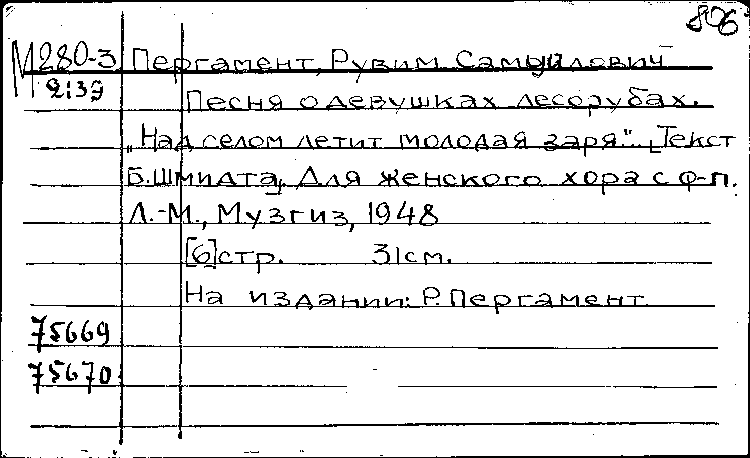 806
М280-3 Пергамент, Рувим Самуйлович
2139 Песня о девушках лесорубах.
„Над селом летит молодая заря". [Текст
Б.Шмидта]. Для женского хора с ф-п.
Л.-М., Музгиз, 1948
[6]стр. 31см.
На издании: Р.Пергамент
75669
75670